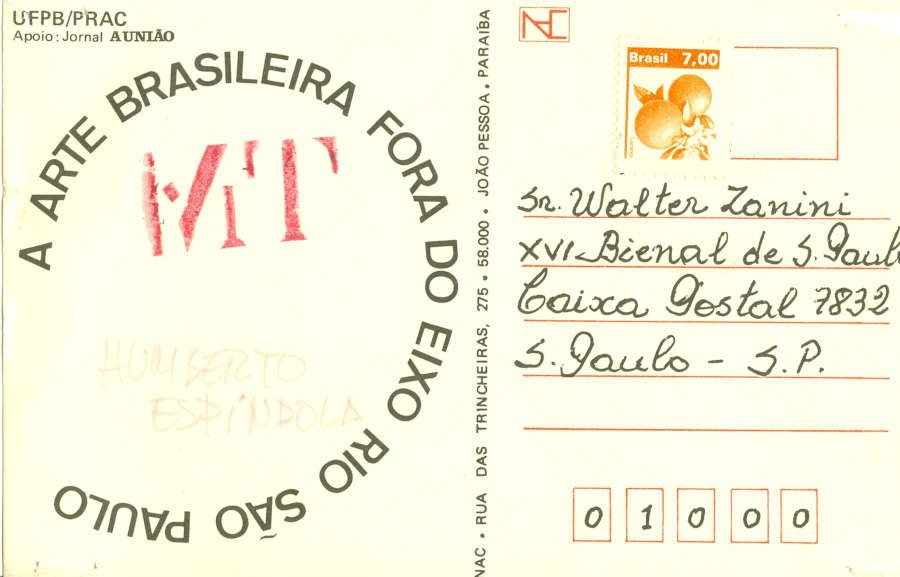 UFPB/PRAC
Apoio: Jornal A UNIÃO
A ARTE BRASILEIRA FORA DO EIXO RIO SÃO PAULO
MT
HUMBERTO
ESPÍNDOLA
NAC • RUA DAS TRINCHEIRAS, 275 • 58.000 • JOÃO PESSOA • PARAIBA
NAC
Brasil 7,00
Sr. Walter Zanini
XVI Bienal de S. Paulo
Caixa Postal 7832
S. Paulo - S.P.
0 1 0 0 0